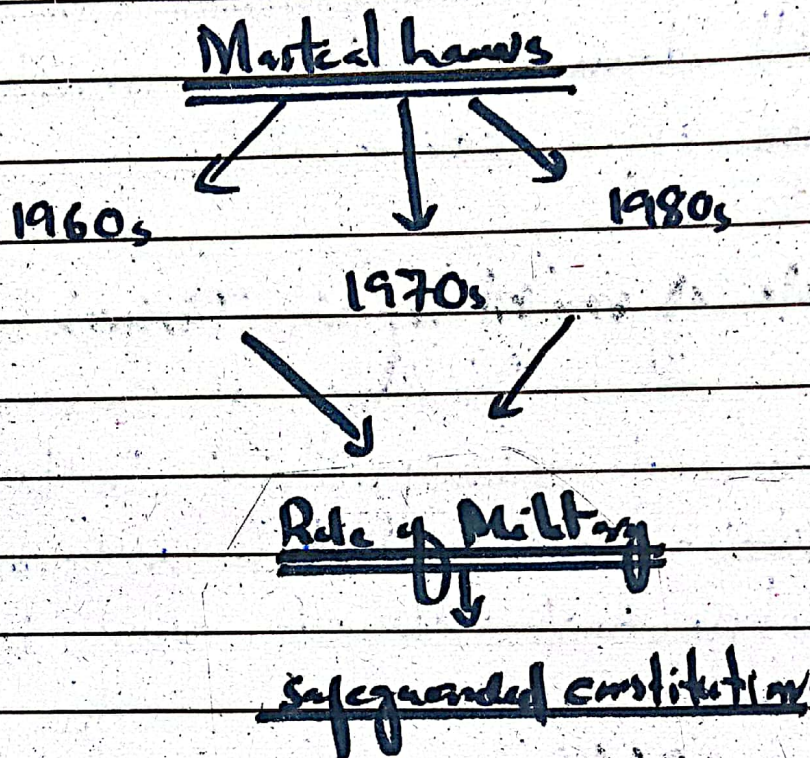 Martial Laws
1960s 1980s
1970s
Role of Military
safeguarded constitution